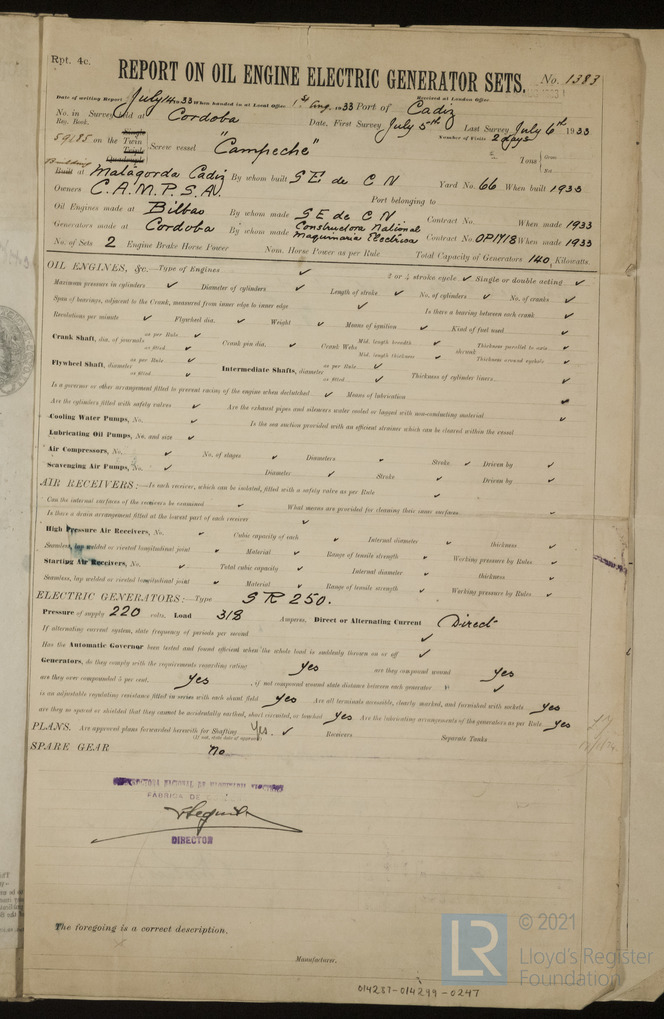 Rpt. 4c.
REPORT ON OIL ENGINE ELECTRIC GENERATOR SETS. No. 1383
Received at London Office
Date of writing Report July 14 1933 When handed in at Local Office 1st Aug. 1933 Port of Cadiz
No. in Reg. Book. Survey held at Cordoba Date, First Survey July 5th Last Survey July 6th 1933
Number of Visits 2 days
59185 on the Single Twin Triple Quadruple Screw vessel "Campeche" Tons Gross Net
Building Built at Matagorda Cadiz By whom built S E de C N Yard No. 66 When built 1933
Owners C.A.M.P.S.A. Port belonging to
Oil Engines made at Bilbao By whom made S E de C N Contract No. When made 1933
Generators made at Cordoba By whom made Constructora National Maquinaria Electrica Contract No. OP1718 When made 1933
No. of Sets 2 Engine Brake Horse Power Nom. Horse Power as per Rule Total Capacity of Generators 140 Kilowatts.
OIL ENGINES, &c.—Type of Engines ✓ 2 or 4 stroke cycle ✓ Single or double acting ✓
Maximum pressure in cylinders ✓ Diameter of cylinders ✓ Length of stroke ✓ No. of cylinders ✓ No. of cranks ✓
Span of bearings, adjacent to the Crank, measured from inner edge to inner edge ✓ Is there a bearing between each crank ✓
Revolutions per minute ✓ Flywheel dia. ✓ Weight ✓ Means of ignition ✓ Kind of fuel used ✓
Crank Shaft, dia. of journals as per Rule ✓ as fitted ✓ Crank pin dia. ✓ Crank Webs Mid. length breadth ✓ Mid. length thickness ✓ shrunk Thickness parallel to axis ✓ Thickness around eyehole ✓
Flywheel Shaft, diameter as per Rule ✓ as fitted ✓ Intermediate Shafts, diameter as per Rule ✓ as fitted ✓ Thickness of cylinder liners ✓
Is a governor or other arrangement fitted to prevent racing of the engine when declutched ✓ Means of lubrication ✓
Are the cylinders fitted with safety valves ✓ Are the exhaust pipes and silencers water cooled or lagged with non-conducting material ✓
Cooling Water Pumps, No. ✓ Is the sea suction provided with an efficient strainer which can be cleared within the vessel
Lubricating Oil Pumps, No. and size ✓
Air Compressors, No. ✓ No. of stages ✓ Diameters ✓ Stroke ✓ Driven by ✓
Scavenging Air Pumps, No. ✓ Diameter ✓ Stroke ✓ Driven by ✓
AIR RECEIVERS:—Is each receiver, which can be isolated, fitted with a safety valve as per Rule ✓
Can the internal surfaces of the receivers be examined ✓ What means are provided for cleaning their inner surfaces
Is there a drain arrangement fitted at the lowest part of each receiver ✓
High Pressure Air Receivers, No. ✓ Cubic capacity of each ✓ Internal diameter ✓ thickness ✓
Seamless, lap welded or riveted longitudinal joint ✓ Material ✓ Range of tensile strength ✓ Working pressure by Rules ✓
Starting Air Receivers, No. ✓ Total cubic capacity ✓ Internal diameter ✓ thickness ✓
Seamless, lap welded or riveted longitudinal joint ✓ Material ✓ Range of tensile strength ✓ Working pressure by Rules ✓
ELECTRIC GENERATORS:—Type S R 250.
Pressure of supply 220 volts. Load 318 Amperes. Direct or Alternating Current Direct
If alternating current system, state frequency of periods per second ✓
Has the Automatic Governor been tested and found efficient when the whole load is suddenly thrown on or off ✓
Generators, do they comply with the requirements regarding rating yes are they compound wound yes
are they over compounded 5 per cent. yes , if not compound wound state distance between each generator ✓
is an adjustable regulating resistance fitted in series with each shunt field yes Are all terminals accessible, clearly marked, and furnished with sockets yes
are they so spaced or shielded that they cannot be accidentally earthed, short circuited, or touched yes Are the lubricating arrangements of the generators as per Rule yes
PLANS. Are approved plans forwarded herewith for Shafting Yes. ✓ Receivers Separate Tanks
(If not, state date of approval)
SPARE GEAR no
FABRICA DE
DIRECTOR
The foregoing is a correct description.
Manufacturer.
014287-014299-0247
LR © 2021
Lloyd's Register
Foundation